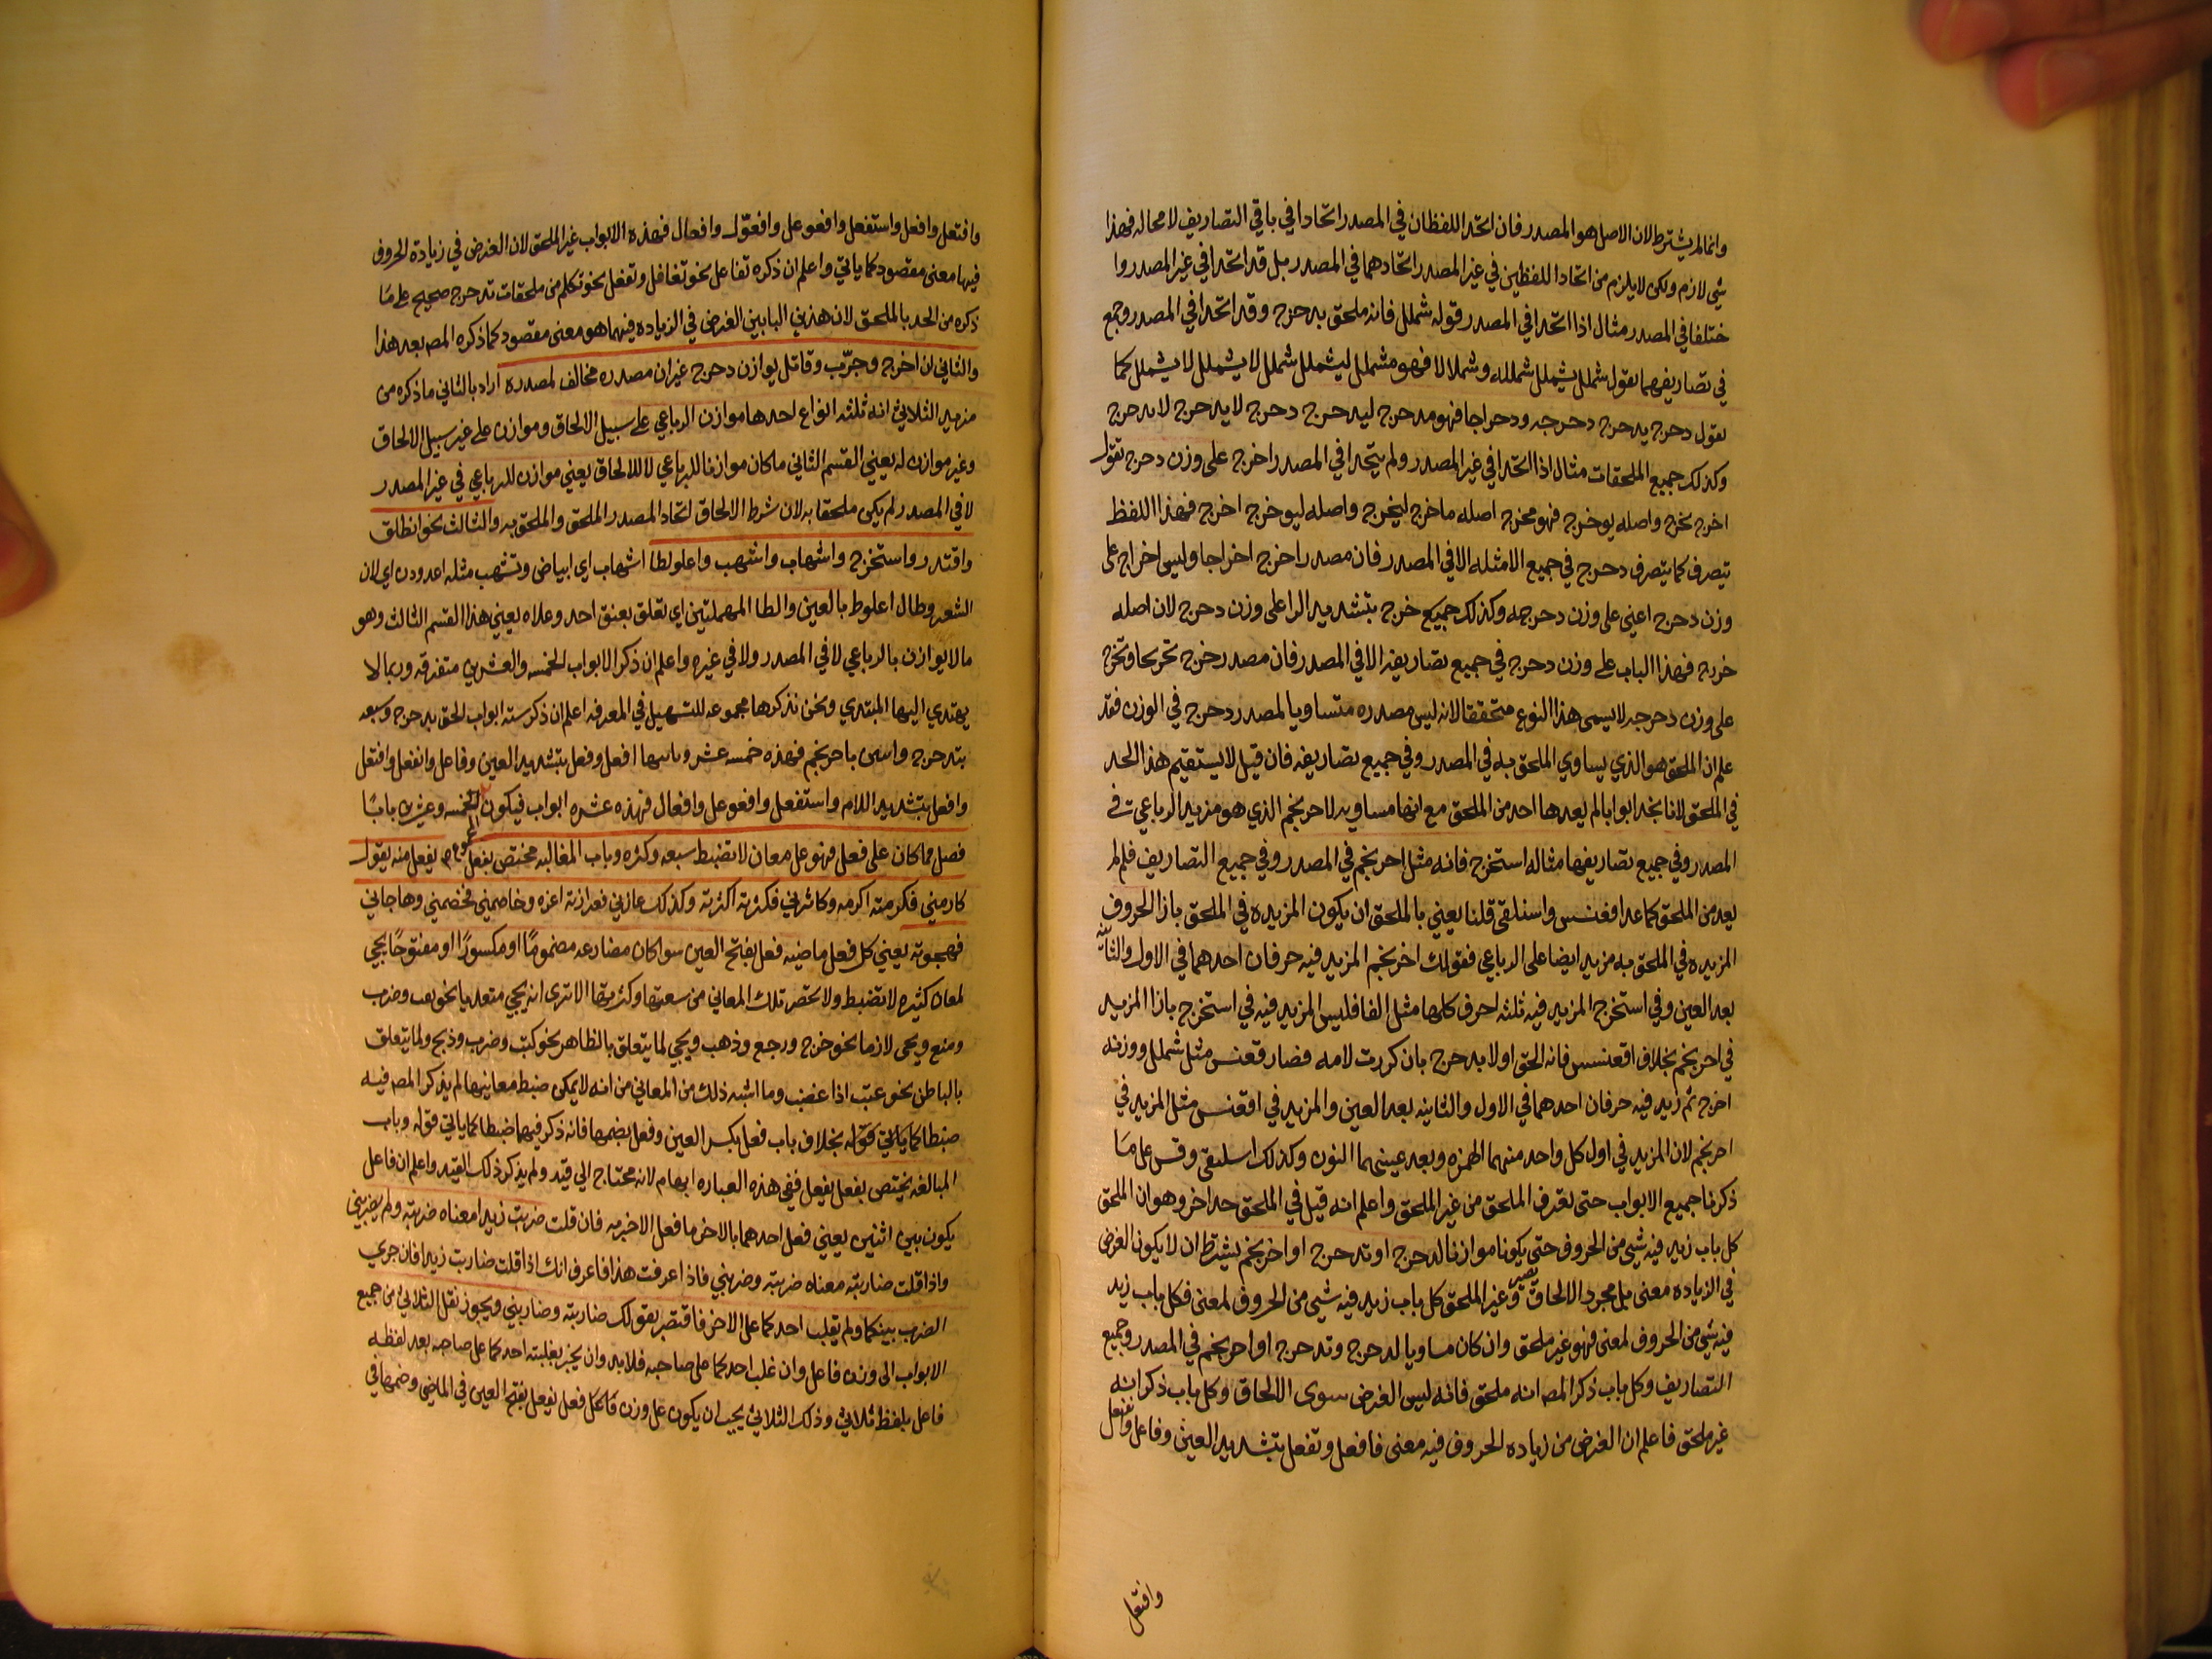 وانما لم يشترط لان الاصل هو المصدر فان اتحد اللفظان في المصدر اتحادا في باقي التصاريف لا محاله فهذا
شي لازم ولكن لا يلزم من اتحاد اللفظين في غير المصدر اتحادهما في المصدر بل قد اتحدا في غير المصدر وا
ختلفا في المصدر مثال اذا اتحدا في المصدر قوله شملل فانه ملحق بدحرج وقد اتحدا في المصدر وجمع
في تصاريفهما يقول شملل يشملل شمللة وشملالا فهو مشملل ليشملل شملل لا يشملل لا يشملل كما
يقول دحرج يدحرج دحرجه ودحراجا فهو مدحرج ليدحرج دحرج لا يدحرج لا يدحرج
وكذلك جميع الملحقات مثال اذا اتحدا في غير المصدر ولم يتحدا في المصدر اخرج على وزن دحرج تقول
اخرج يخرج واصله يوخرج فهو مخرج اصله ماخرج ليخرج واصله ليوخرج اخرج فهذا اللفظ
يتصرف كما يتصرف دحرج في جميع الامثله الا في المصدر فان مصدر اخرج اخراجا وليس اخراج على
وزن دحرج اعني على وزن دحرجه وكذلك جميع خرج بتشديد الرا على وزن دحرج لان اصله
خررج فهذا الباب على وزن دحرج في جميع تصاريفه الا في المصدر فان مصدر خرج تخريجا وتخرجه
على وزن دحرجه لا يسمى هذا النوع متحققا لانه ليس مصدره متساويا لمصدر دحرج في الوزن فقد
علم ان الملحق هو الذي يساوي الملحق به في المصدر وفي جميع تصاريفه فان قيل لا يستقيم هذا الحد
في الملحق لانا نجد ابوابا لم يعدها احد من الملحق مع انها مساويه لاحرنجم الذي هو مزيد الرباعي في
المصدر وفي جميع تصاريفها مثاله استخرج فانه مثل احرنجم في المصدر وفي جميع التصاريف فلم لم
يعد من الملحق كما عد اقعنسس واسلنقى قلنا يعني بالملحق ان يكون المزيده في الملحق بازا الحروف
المزيده في الملحق به مزيد ايضا على الرباعي فقولك احرنجم المزيد فيه حرفان احدهما في الاول والثانيه
بعد العين وفي استخرج المزيد فيه ثلثه احرف كلها مثل الفا فليس المزيد فيه في استخرج بازا المزيد
في احرنجم بخلاف اقعنسس فانه الحق اولا بدحرج بان كررت لامه فصار قعنس مثل شملل ووزنه
اخرج ثم زيد فيه حرفان احدهما في الاول والثانيه بعد العين والمزيد في اقعنس مثل المزيد في
احرنجم لان المزيد في اول كل واحد منهما الهمزه وبعد عينهما النون وكذلك اسلنقى وقس على ما
ذكرنا جميع الابواب حتى تعرف الملحق من غير الملحق واعلم انه قيل في الملحق حد اخر وهو ان الملحق
كل باب زيد فيه شي من الحروف حتى يكونا موازنا لدحرج او تدحرج او احرنجم بشرط ان لا يكون الغرض
في الزياده معنى بل مجرد الالحاق وغير الملحق كل باب زيد فيه شي من الحروف لمعنى فكل باب زيد
فيه شي من الحروف لمعنى فهو غير ملحق وان كان مساويا لدحرج وتدحرج او احرنجم في المصدر وجميع
التصاريف وكل باب ذكر المص انه ملحق فانه ليس الغرض سوى الالحاق وكل باب ذكر انه
غير ملحق فاعلم ان الغرض من زياده الحروف فيه معنى فافعل وتفعل بتشديد العين وفاعل وانفعل
وافتعل
وافتعل وافعل واستفعل وافعوعل وافعوّل وافعال فهذه الابواب غير الملحق لان الغرض في زيادة الحروف
فيها معنى مقصود كما ياتي واعلم ان ذكره تفاعل نحو تغافل وتفعل نحو تكلم من ملحقات تدحرج صحيح على ما
ذكره من الحد بالملحق لان هذين البابين الغرض في الزياده فيهما هو معنى مقصود كما ذكره المص بعد هذا
والثاني ان اخرج وجرّب وقاتل يوازن دحرج غير ان مصدره مخالف لمصدره اراد بالثاني ما ذكره من
مزيد الثلاثي انه ثلثه انواع احدها موازن الرباعي على سبيل الالحاق وموازن على غير سبيل الالحاق
وغير موازن له يعني القسم الثاني ما كان موازنا للرباعي لا للالحاق يعني موازن للرباعي في غير المصدر
لا في المصدر لم يكن ملحقا به لان شرط الالحاق اتحاد المصدر الملحق والملحق به والثالث نحو انطلق
واقتدر واستخرج واشهاب واشهب واعلوط اشهاب اي ابياض وتشهب مثله اعدودن اي لان
الشعر وطال اعلوط بالعين والطا المهملتين اي تعلق بعنق احد وعلاه يعني هذا القسم الثالث وهو
ما لا يوازن بالرباعي لا في المصدر ولا في غيره واعلم ان ذكر الابواب الخمسه والعشرين متفرقه وربما لا
يهتدي اليها المبتدي ونحن نذكرها مجموعه للتسهيل في المعرفه اعلم ان ذكر سته ابواب الحق بدحرج وسبعه
بتدحرج واسى باحرنجم فهذه خمسه عشر وباسها افعل وفعل بتشديد العين وفاعل وانفعل وافتعل
وافعل بتشديد اللام واستفعل وافعوعل وافعال فهذه عشره ابواب فيكون الخمسه وعشرين بابًا
فصل فما كان على فعل فهو على معان لا تضبط سعه وكثره وباب المغالبه مختص بفعل يفعل منه يقول
كارمني فكرمته اكرمه وكاثرني فكثرته اكثرته وكذلك عازني فعززته اعزه وخاصمني فخصمني وهاجاني
فهجوته يعني كل فعل ماضيه فعل بفتح العين سوا كان مضارعه مضمومًا او مكسورًا او مفتوحًا يجي
لمعان كثيره لا تضبط ولا تحصر تلك المعاني من سعتها وكثرتها الا ترى انه يجي متعديا نحو بعث وضرب
ومنع ويجي لازما نحو خرج ورجع وذهب ويجي لما يتعلق بالظاهر نحو كتب وضرب وذبح ولما يتعلق
بالباطن نحو عتب اذا غضب وما اشبه ذلك من المعاني من انه لا يمكن ضبط معانيها لم يذكر المص فيه
ضبطا كما ياتي قوله بخلاف باب فعل بكسر العين وفعل بضمها فانه ذكر فيهما ضبطا كما ياتي قوله وباب
المبالغه يختص بفعل يفعل ففي هذه العباره ابهام لانه محتاج الي قيد ولم يذكر ذلك القيد واعلم ان فاعل
يكون بين اثنين يعني فعل احدهما بالاخر ما فعل الاخر به فان قلت ضربت زيدا معناه ضربته ولم يضربني
واذا قلت ضاربته معناه ضربته وضربني فاذا عرفت هذا فاعرف انك اذا قلت ضاربت زيدا فان جري
الضرب بينكما ولم يغلب احدكما على الاخر فاقتصر بقولك ضاربته وضاربني ويجوز نقل الثلاثي من جميع
الابواب الى وزن فاعل وان غلب احدكما على صاحبه فلابد وان يخبر بغلبته احدكما على صاحبه بعد لفظه
فاعل بلفظ ثلاثي وذلك الثلاثي يجب ان يكون على وزن فاعل فعل يفعل بفتح العين في الماضي وضمها في